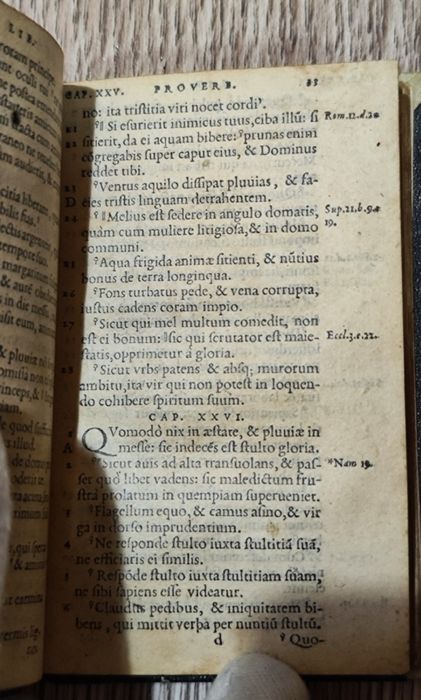 CAP. XXV. PROVERB. 83
no: ita tristitia viri nocet cordi.
21 Si esurierit inimicus tuus, ciba illū: si
22 sitierit, da ei aquam bibere: prunas enim
cōgregabis super caput eius, & Dominus
reddet tibi.
23 Ventus aquilo dissipat pluuias, & fa-
D cies tristis linguam detrahentem.
24 Melius est sedere in angulo domatis,
quàm cum muliere litigiosa, & in domo
communi.
25 Aqua frigida animæ sitienti, & nūtius
bonus de terra longinqua.
26 Fons turbatus pede, & vena corrupta,
iustus cadens coram impio.
27 Sicut qui mel multum comedit, non
est ei bonum: sic qui scrutator est maie-
statis, opprimetur à gloria.
28 Sicut vrbs patens & absq; murorum
ambitu, ita vir qui non potest in loquen-
do cohibere spiritum suum.
CAP. XXVI.
1 QVomodò nix in æstate, & pluuiæ in
A messe: sic indecēs est stulto gloria.
2 Sicut auis ad alta transuolans, & pas-
ser quò libet vadens: sic maledictum fru-
strà prolatum in quempiam superueniet.
3 Flagellum equo, & camus asino, & vir
ga in dorso imprudentium.
4 Ne responde stulto iuxta stultitiā suā,
ne efficiaris ei similis.
5 Respōde stulto iuxta stultitiam suam,
ne sibi sapiens esse videatur.
6 Claudus pedibus, & iniquitatem bi-
bens, qui mittit verba per nuntiū stultū.
d Quo-
Rom. 12. d. 20
Sup. 21. b. 9. &
19.
Eccl. 3. c. 22.
Nam 19.